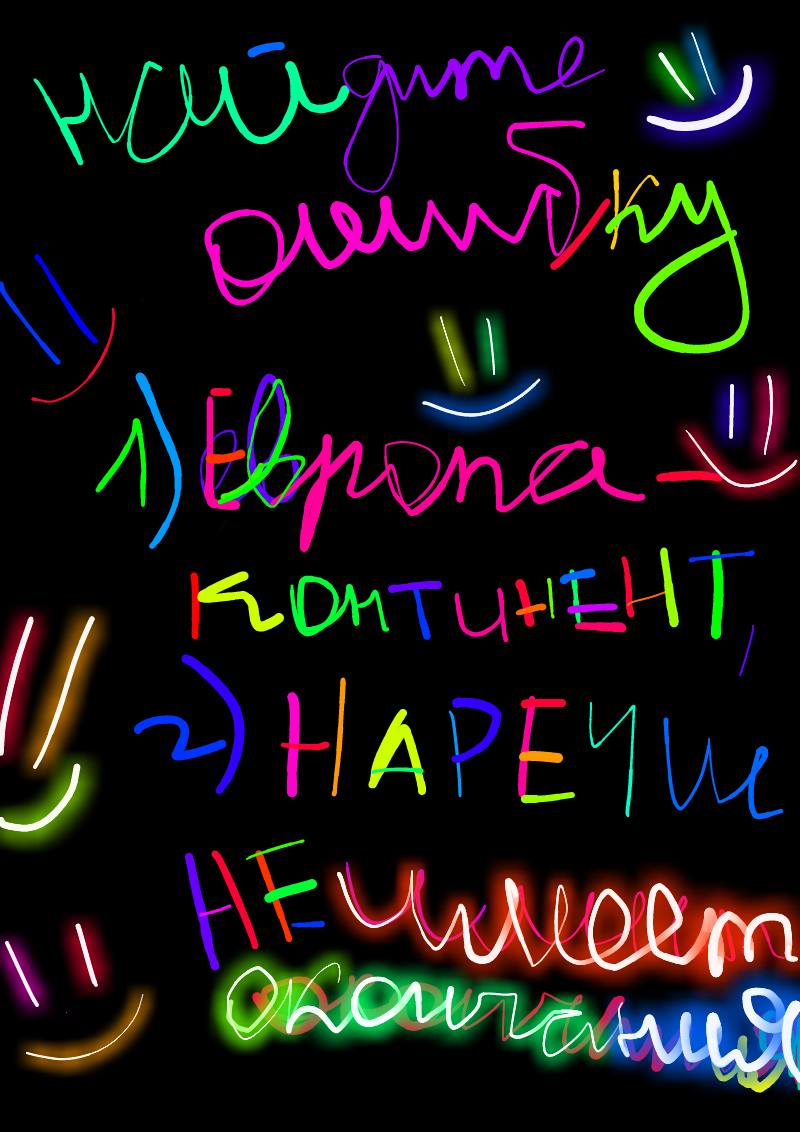 найдите
ошибку
1) Европа –
континент,
2) НАРЕЧИЕ
НЕ имеет
окончание